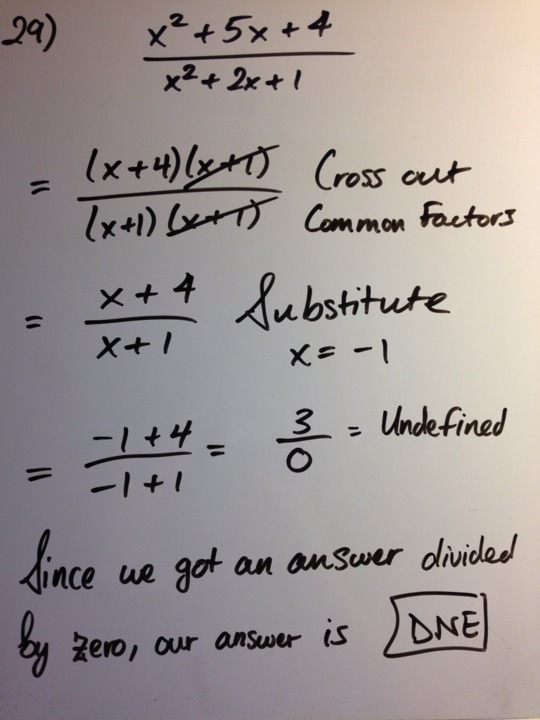 29) x² + 5x + 4
x² + 2x + 1
= (x+4)(x+1) Cross out
(x+1)(x+1) Common Factors
= x + 4 Substitute
x + 1 x = -1
= -1 + 4 = 3 = Undefined
-1 + 1 0
Since we got an answer divided
by zero, our answer is DNE